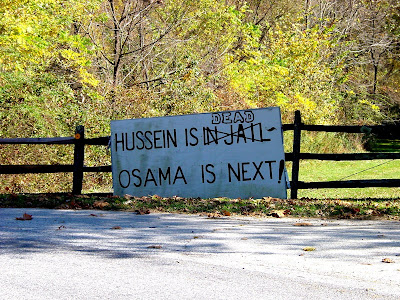 DEAD
HUSSEIN IS IN JAIL
OSAMA IS NEXT!